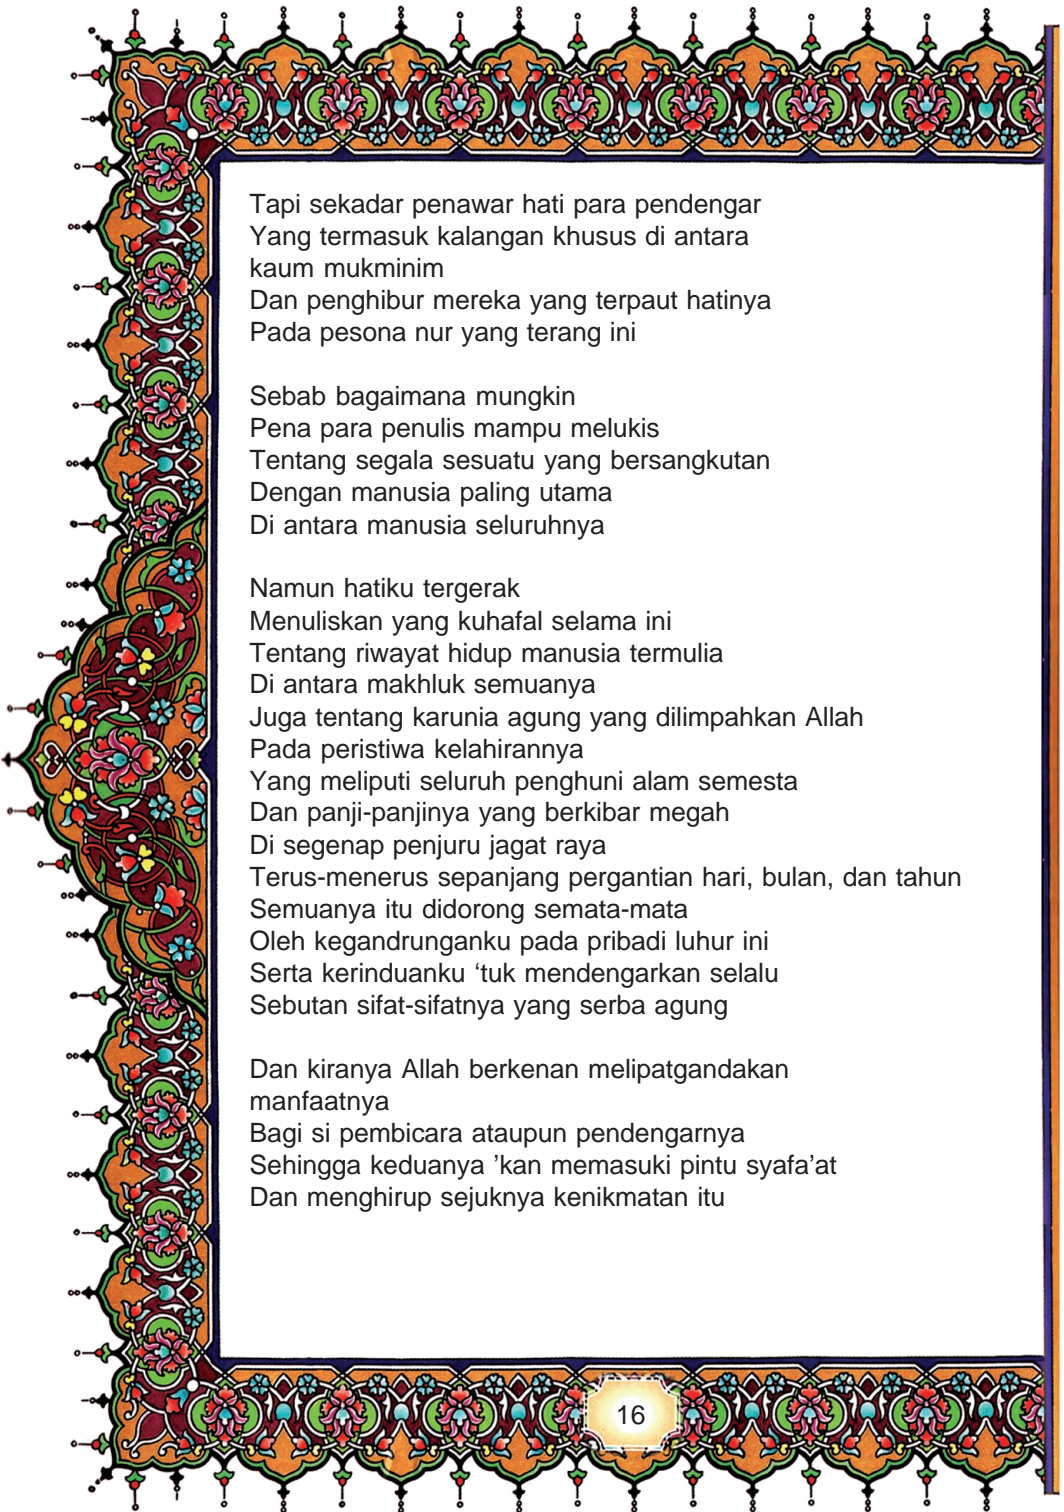 Tapi sekadar penawar hati para pendengar
Yang termasuk kalangan khusus di antara
kaum mukminim
Dan penghibur mereka yang terpaut hatinya
Pada pesona nur yang terang ini
Sebab bagaimana mungkin
Pena para penulis mampu melukis
Tentang segala sesuatu yang bersangkutan
Dengan manusia paling utama
Di antara manusia seluruhnya
Namun hatiku tergerak
Menuliskan yang kuhafal selama ini
Tentang riwayat hidup manusia termulia
Di antara makhluk semuanya
Juga tentang karunia agung yang dilimpahkan Allah
Pada peristiwa kelahirannya
Yang meliputi seluruh penghuni alam semesta
Dan panji-panjinya yang berkibar megah
Di segenap penjuru jagat raya
Terus-menerus sepanjang pergantian hari, bulan, dan tahun
Semuanya itu didorong semata-mata
Oleh kegandrunganku pada pribadi luhur ini
Serta kerinduanku ‘tuk mendengarkan selalu
Sebutan sifat-sifatnya yang serba agung
Dan kiranya Allah berkenan melipatgandakan
manfaatnya
Bagi si pembicara ataupun pendengarnya
Sehingga keduanya ’kan memasuki pintu syafa'at
Dan menghirup sejuknya kenikmatan itu
16